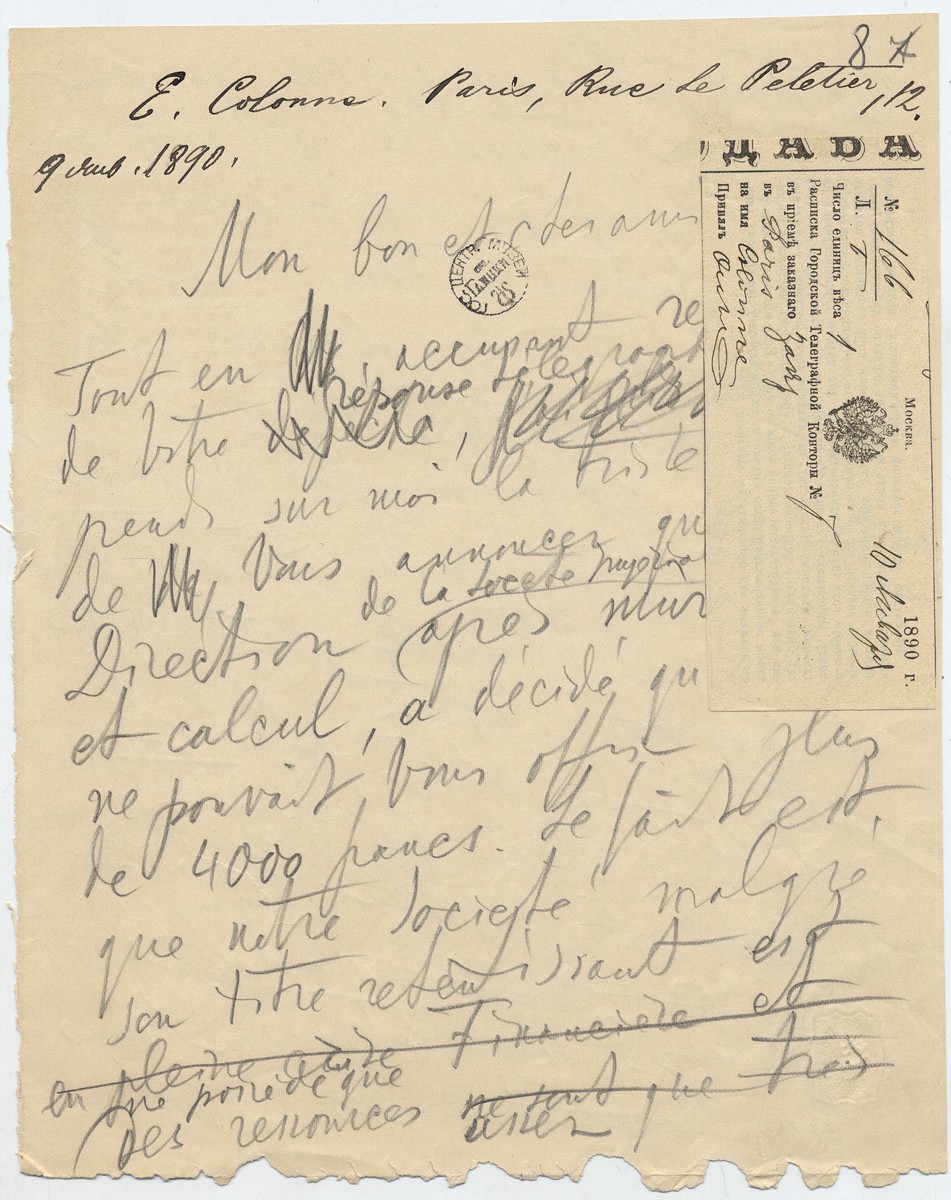 87
E. Colonne. Paris, Rue Le Peletier, 12.
9 янв. 1890.
Mon bon et cher ami
Tout en accusant re
réponse télégraph
de votre dépêche,
prends sur moi la triste
de Vous annoncer qu
de la Société
Direction après mur
et calcul, a décidé qu
ne pouvait Vous offrir plus
de 4000 francs. Le fait est,
que notre Société malgré
son titre retentissant est
en pleine crise financière et
ne possède que
ses ressources ne sont que très
assez
ЦЕНТР. МУЗЕЙ
ДАЧА
№ 166
Л. 1
Число единиц вѣса 1
Расписка Городской Телеграфной Конторы № 7
въ пріемѣ заказнаго
въ Paris
на имя Colonne
Принялъ
Москва.
10 Января 1890 г.